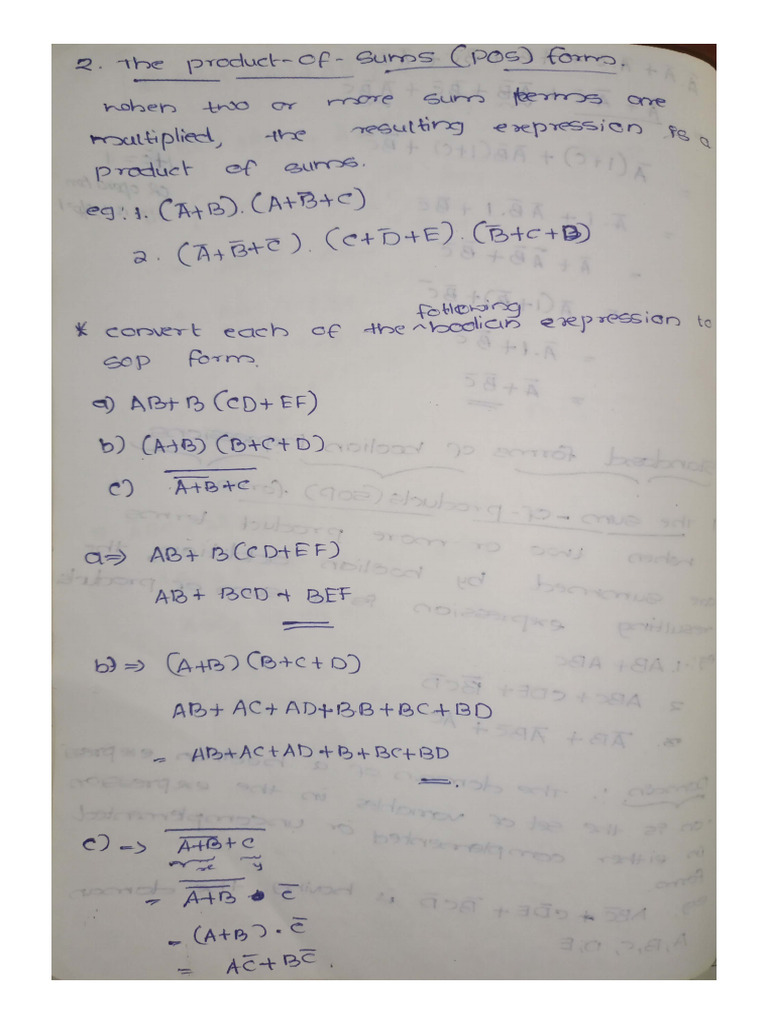 2. The product-of-sums (POS) form.
when two or more sum terms are
multiplied, the resulting expression is a
product of sums.
eg: 1. (Ā+B). (A+B̅+C)
2. (Ā+B̅+C̅). (C+D̅+E). (B̅+C+D)
* convert each of the following boolian expression to
SOP form.
a) AB+B(CD+EF)
b) (A+B) (B+C+D)
c) \overline{\overline{A+B}+C}
a⇒ AB+B(CD+EF)
AB+ BCD + BEF
b)⇒ (A+B) (B+C+D)
AB+ AC+AD+BB+BC+BD
= AB+AC+AD+B+BC+BD
c) ⇒ \overline{\overline{A+B}+C}
x y
= \overline{\overline{A+B}} • C̅
= (A+B) • C̅
= AC̅+BC̅.